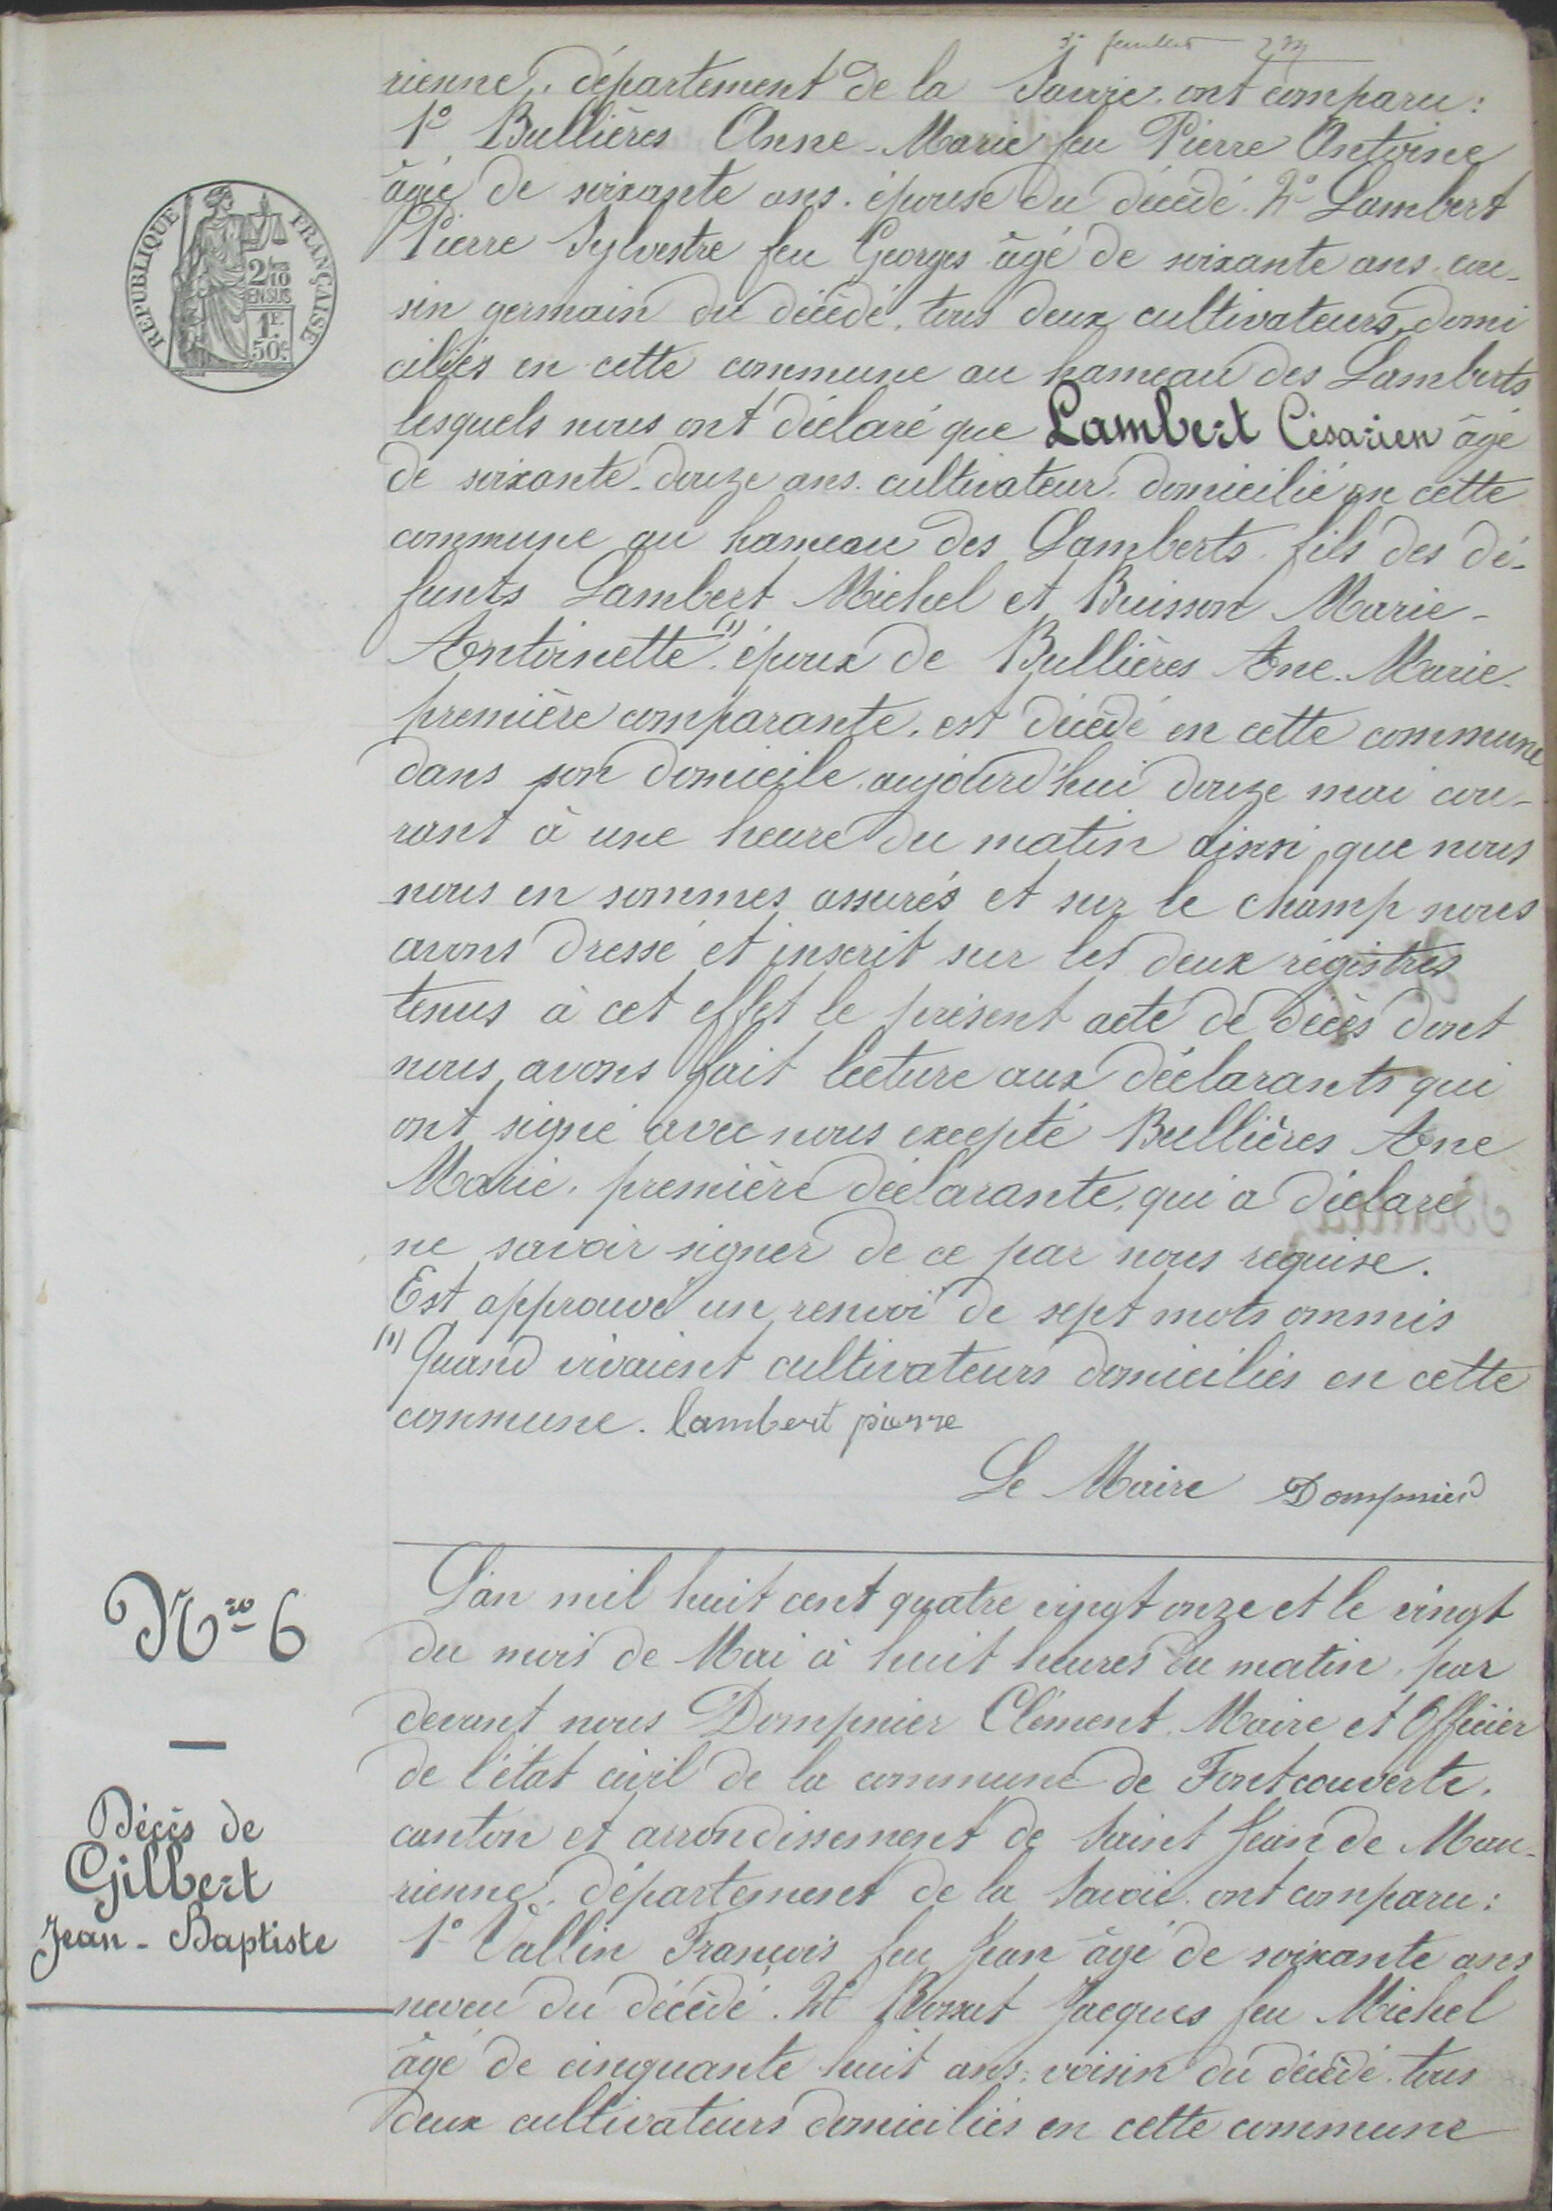 3e feuillet
rienne, département de la Savoie, ont comparu :
1° Bullières Anne-Marie feu Pierre Antoine
âgée de soixante ans. épouse du décédé. 2° Lambert
Pierre Sylvestre feu Georges âgé de soixante ans, cou-
sin germain du décédé, tous deux cultivateurs, domi
ciliés en cette commune au hameau des Lamberts
lesquels nous ont déclaré que Lambert Césarien âgé
de soixante-douze ans. cultivateur, domicilié en cette
commune au hameau des Lamberts, fils des dé-
funts Lambert Michel et Buisson Marie-
Antoinette (1), époux de Bullières Ane-Marie
première comparante, est décédé en cette commune
dans son domicile, aujourd'hui douze mai cou-
rant à une heure du matin ainsi que nous
nous en sommes assurés et sur le champ nous
avons dressé et inscrit sur les deux régistres
tenus à cet effet le présent acte de décès dont
nous avons fait lecture aux déclarants qui
ont signé avec nous excepté Bullières Ane
Marie, première déclarante, qui a déclaré
ne savoir signer de ce par nous requise.
Est approuvé un renvoi de sept mots ommis
(1) Quand vivaient cultivateurs domiciliés en cette
commune. lambert pierre
Le Maire Dompnier
Nro 6
Décès de
Gilbert
Jean-Baptiste
L'an mil huit cent quatre vingt onze et le vingt
du mois de Mai à huit heures du matin, par
devant nous Dompnier Clément, Maire et Officier
de l'état civil de la commune de Fontcouverte,
canton et arrondissement de Saint Jean de Mau-
rienne, département de la Savoie, ont comparu :
1° Vallin François feu Jean âgé de soixante ans
neveu du décédé. 2° Bossut Jacques feu Michel
âgé de cinquante huit ans, voisin du décédé, tous
deux cultivateurs domiciliés en cette commune
REPUBLIQUE FRANÇAISE
2/10
EN SUS
1F
50c